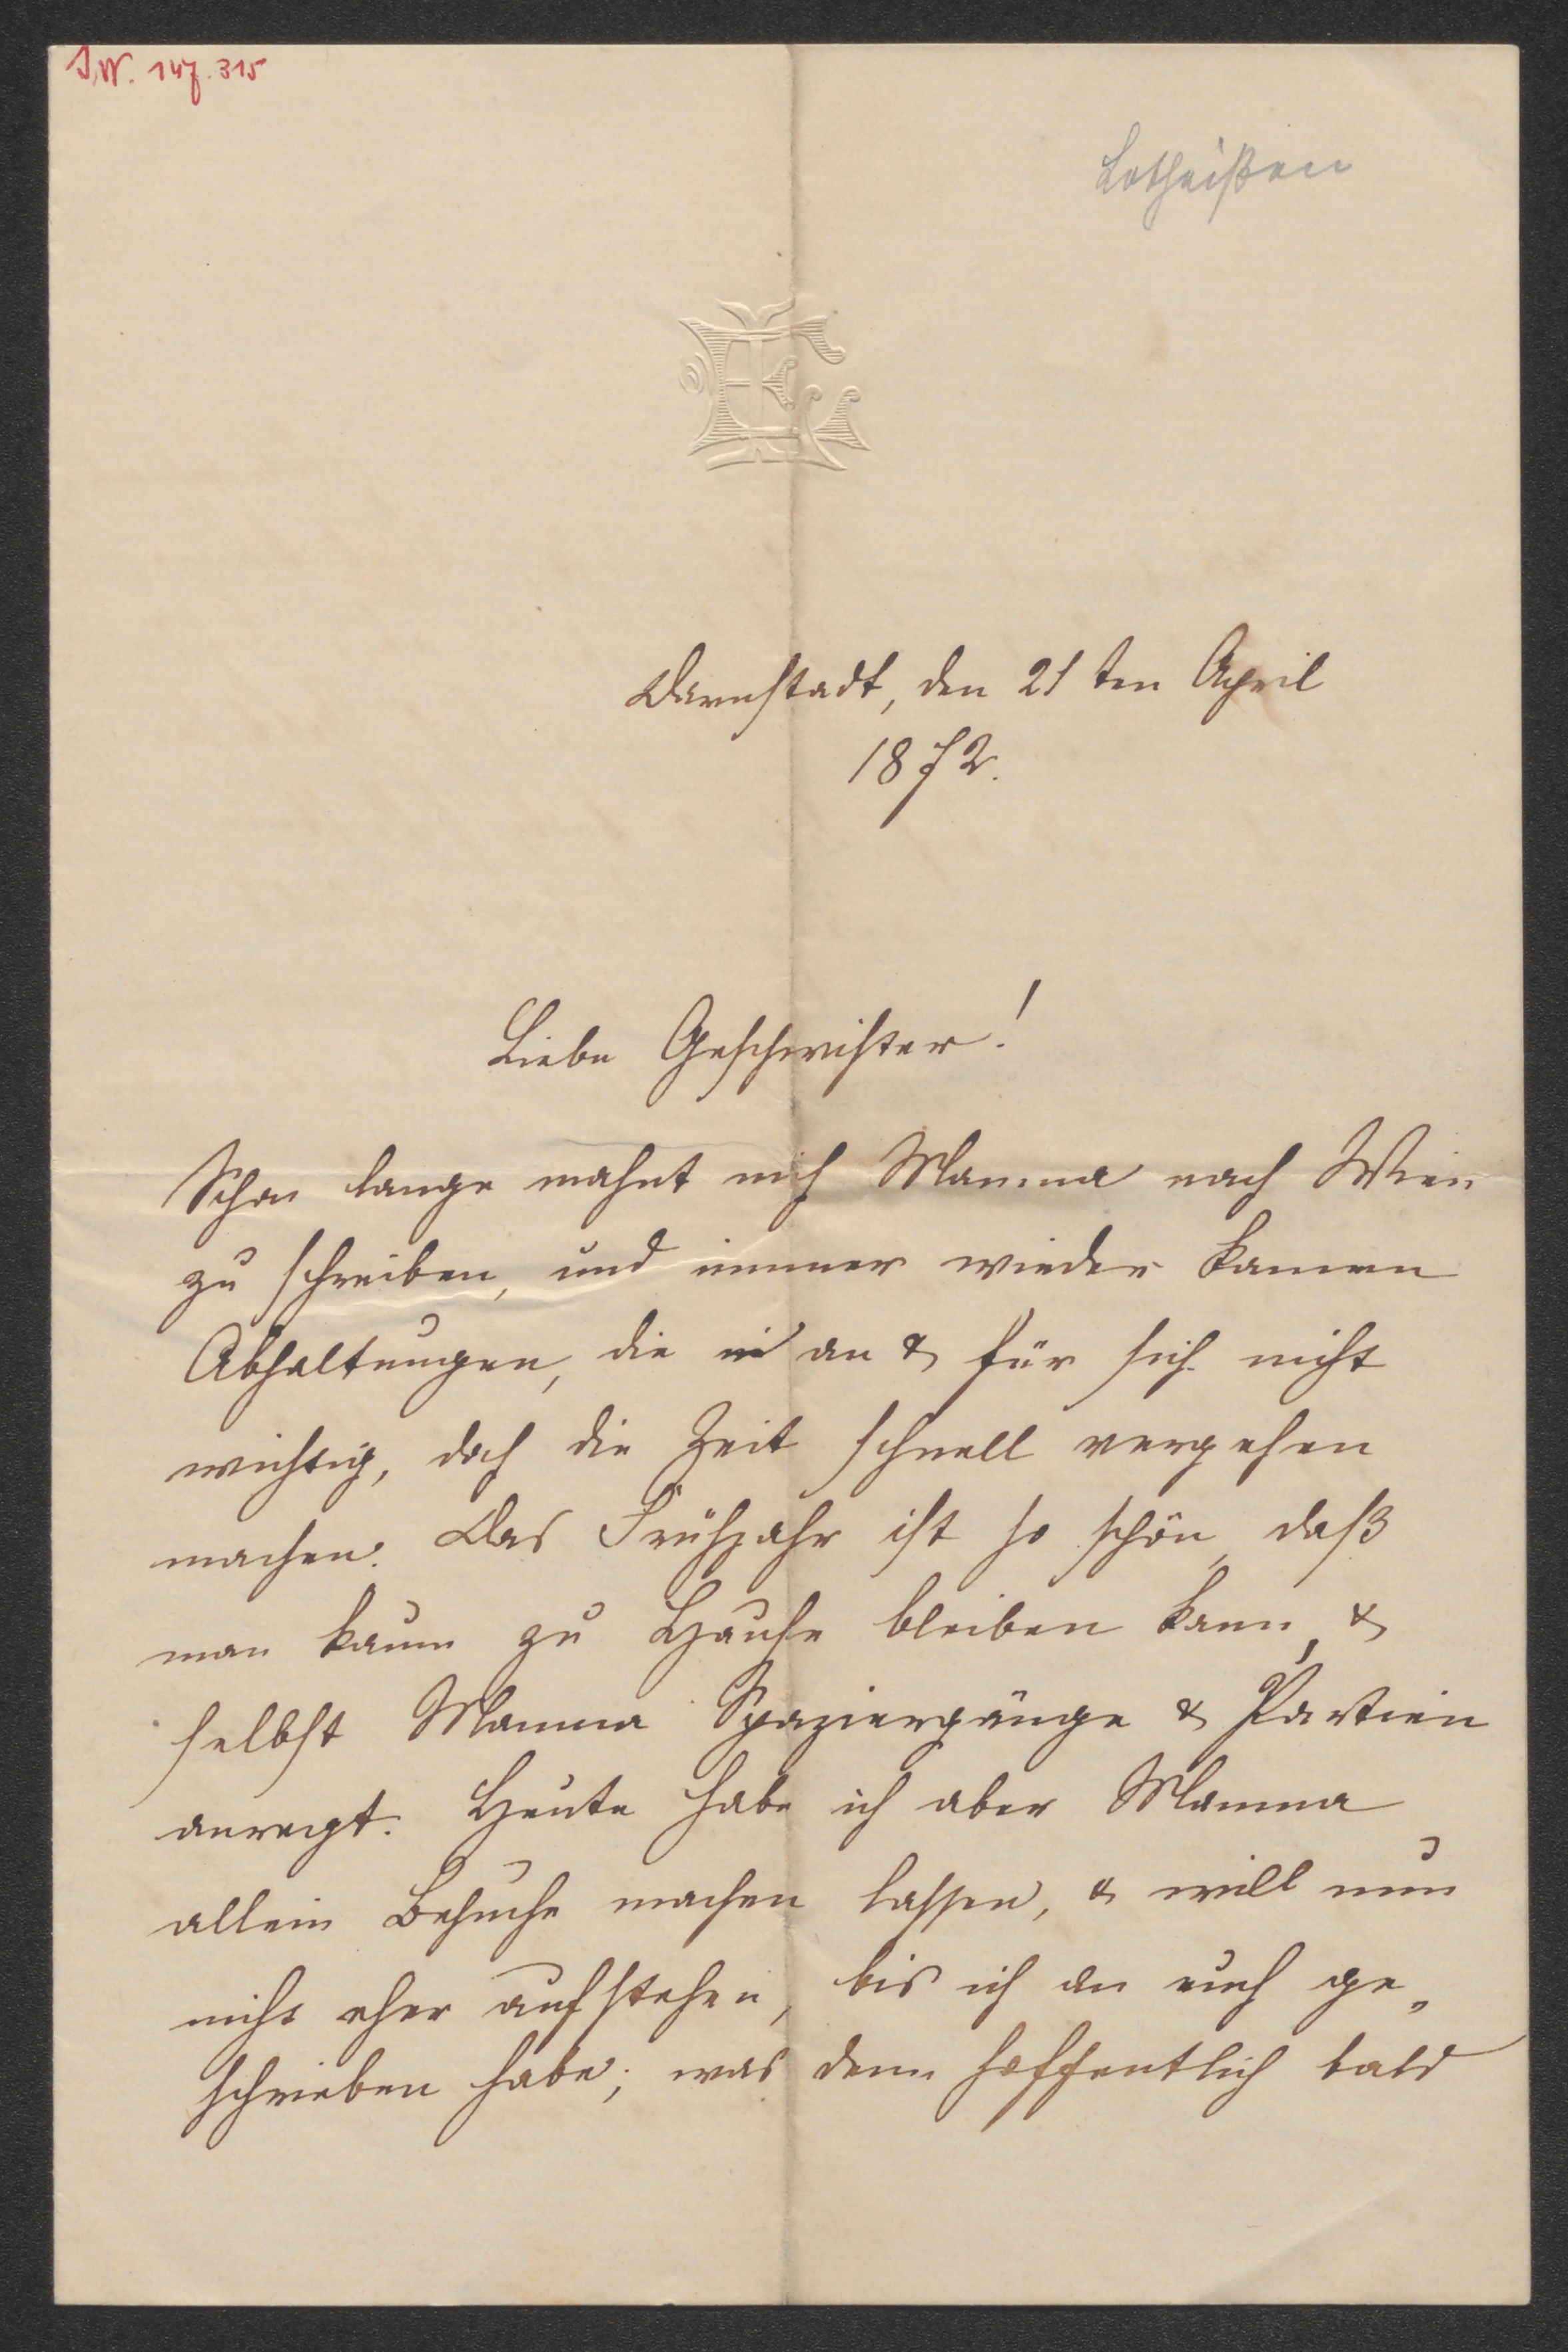 I.N. 147.315
Lotheißen
EL
Darmstadt, den 21 ten April
1872.
Liebe Geschwister!
Schon lange mahnt mich Mamma nach Wien
zu schreiben, und immer wieder kamen
Abhaltungen, die an & für sich nicht
wichtig, doch die Zeit schnell vergehen
machen. Das Frühjahr ist so schön, daß
man kaum zu Hause bleiben kann, &
selbst Mamma Spaziergänge & Partien
anregt. Heute habe ich aber Mamma
allein Besuche machen lassen, & will nun
nicht eher aufstehen, bis ich an euch ge„
schrieben habe; was denn hoffentlich bald